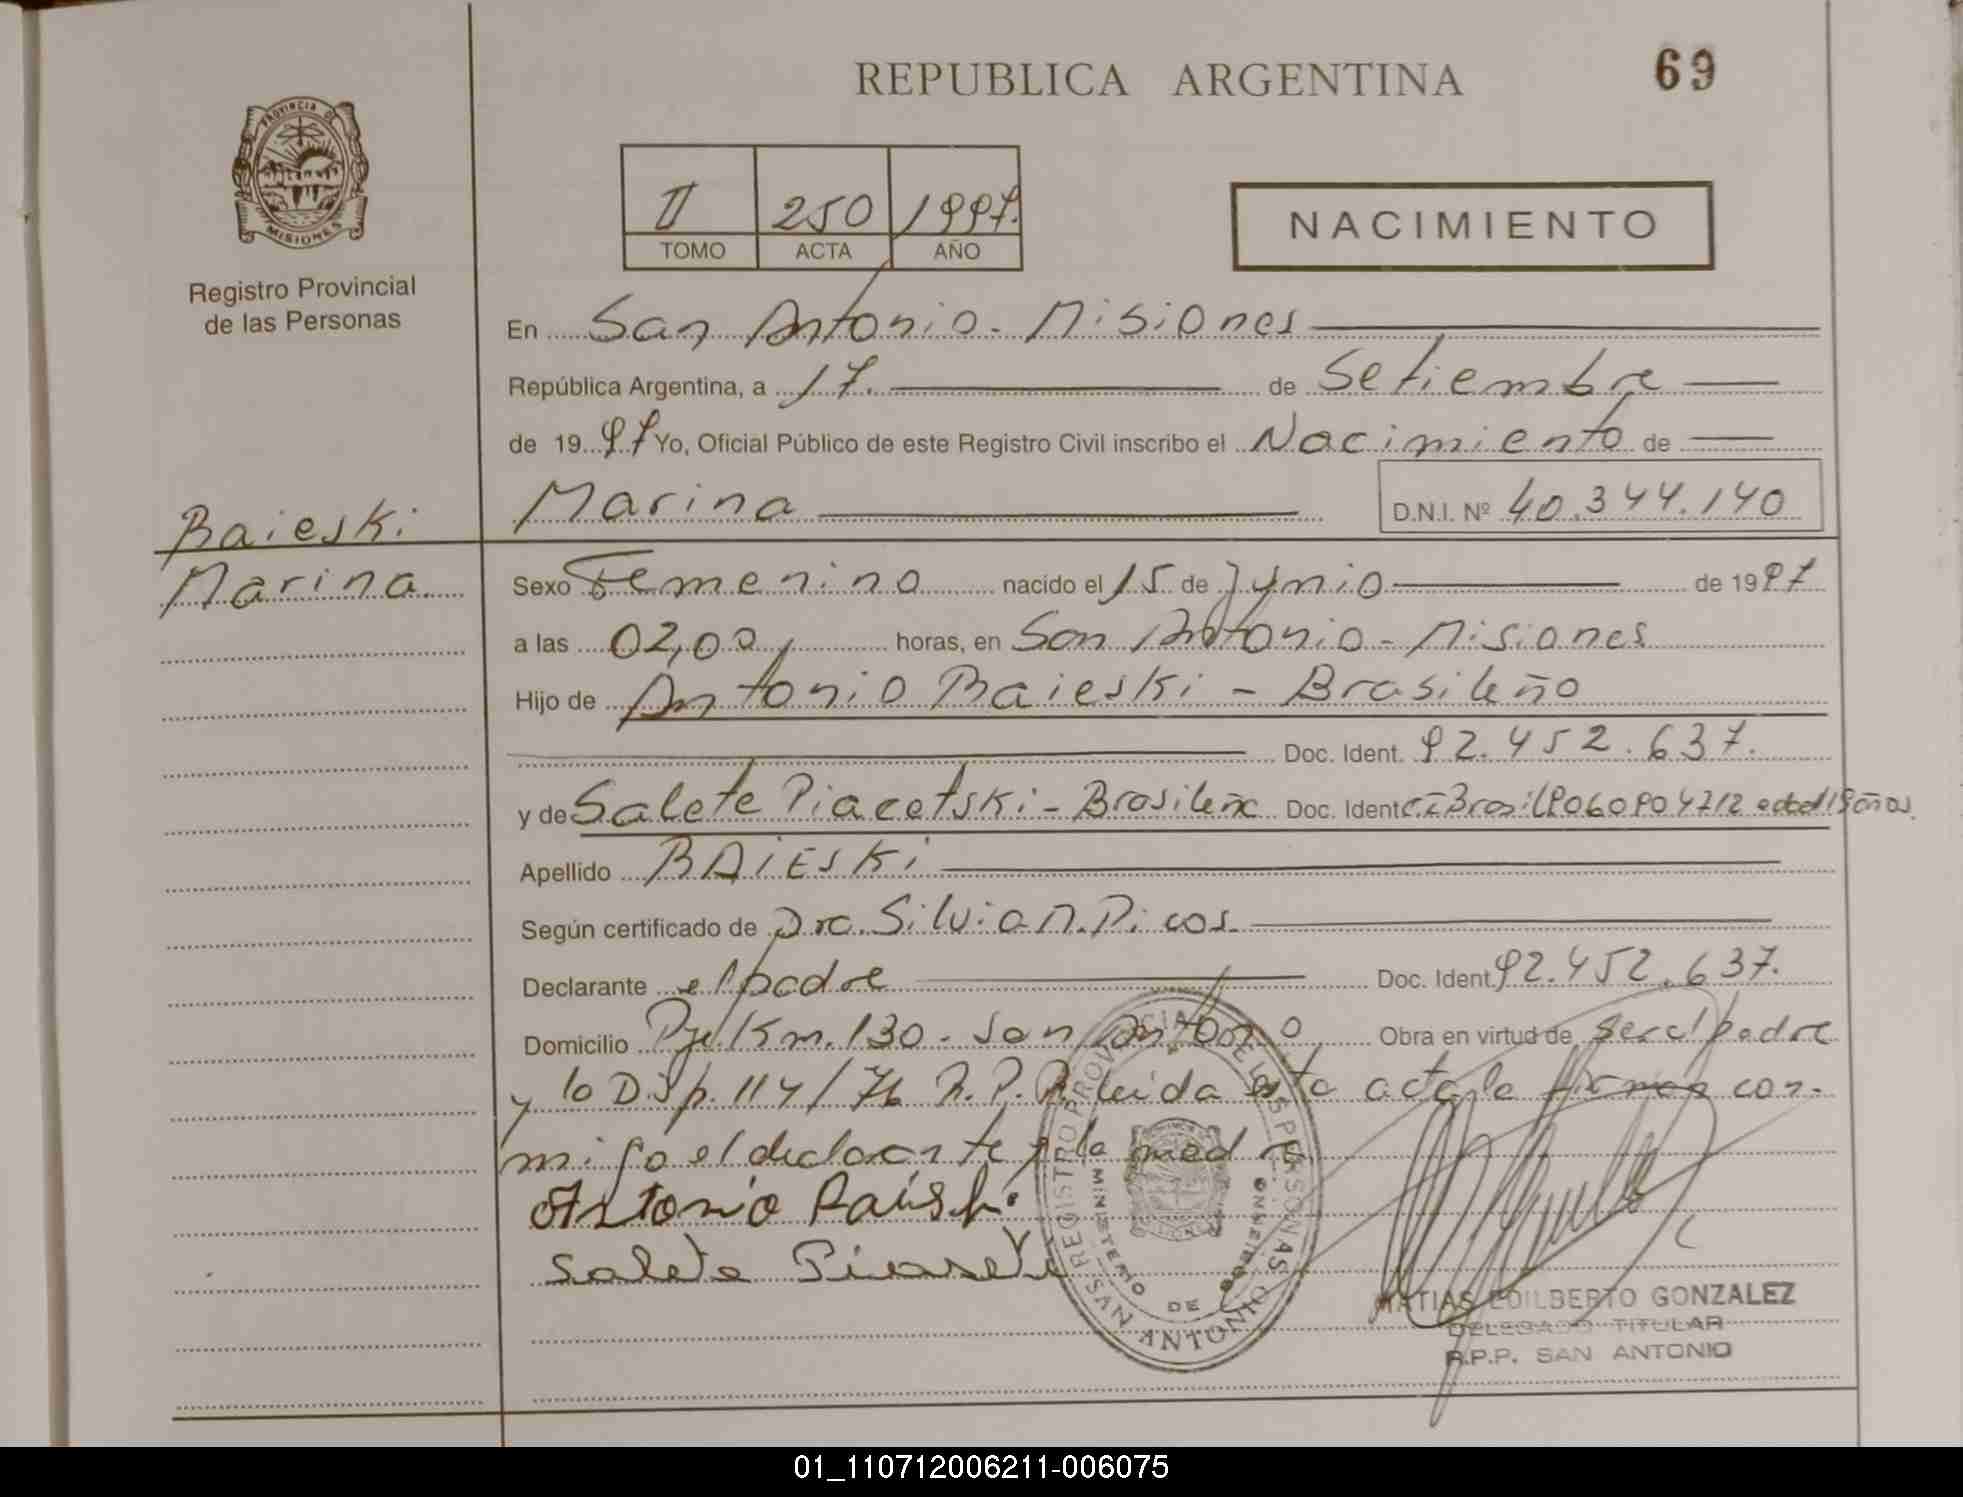 REPUBLICA ARGENTINA
69
PROVINCIA DE MISIONES
Registro Provincial
de las Personas
II 250 1997.
TOMO ACTA AÑO
NACIMIENTO
En San Antonio - Misiones
República Argentina, a 17. de Setiembre
de 1997 Yo, Oficial Público de este Registro Civil inscribo el Nacimiento de
Baieski
Marina
Marina D.N.I. Nº 40.344.140
Sexo Femenino nacido el 15 de Junio de 1997
a las 02,00 horas, en San Antonio - Misiones
Hijo de Antonio Baieski - Brasileño
Doc. Ident. 92.452.637.
y de Salete Piacetski - Brasileña Doc. Ident C.I Brasil 9060904712 edad 19 años.
Apellido BAIESKI
Según certificado de Dra. Silvia N. Picos
Declarante el padre Doc. Ident. 92.452.637.
Domicilio Pje. Km. 130 - San Antonio Obra en virtud de ser el padre
y lo Disp. 114/76 R.P.P. Leida esta acta le firman con-
migo el declarante y la madre
Antonio
Salete
REGISTRO PROVINCIAL DE LAS PERSONAS
MINISTERIO DE GOBIERNO
SAN ANTONIO
MATIAS EDILBERTO GONZALEZ
DELEGADO TITULAR
R.P.P. SAN ANTONIO
01_110712006211-006075